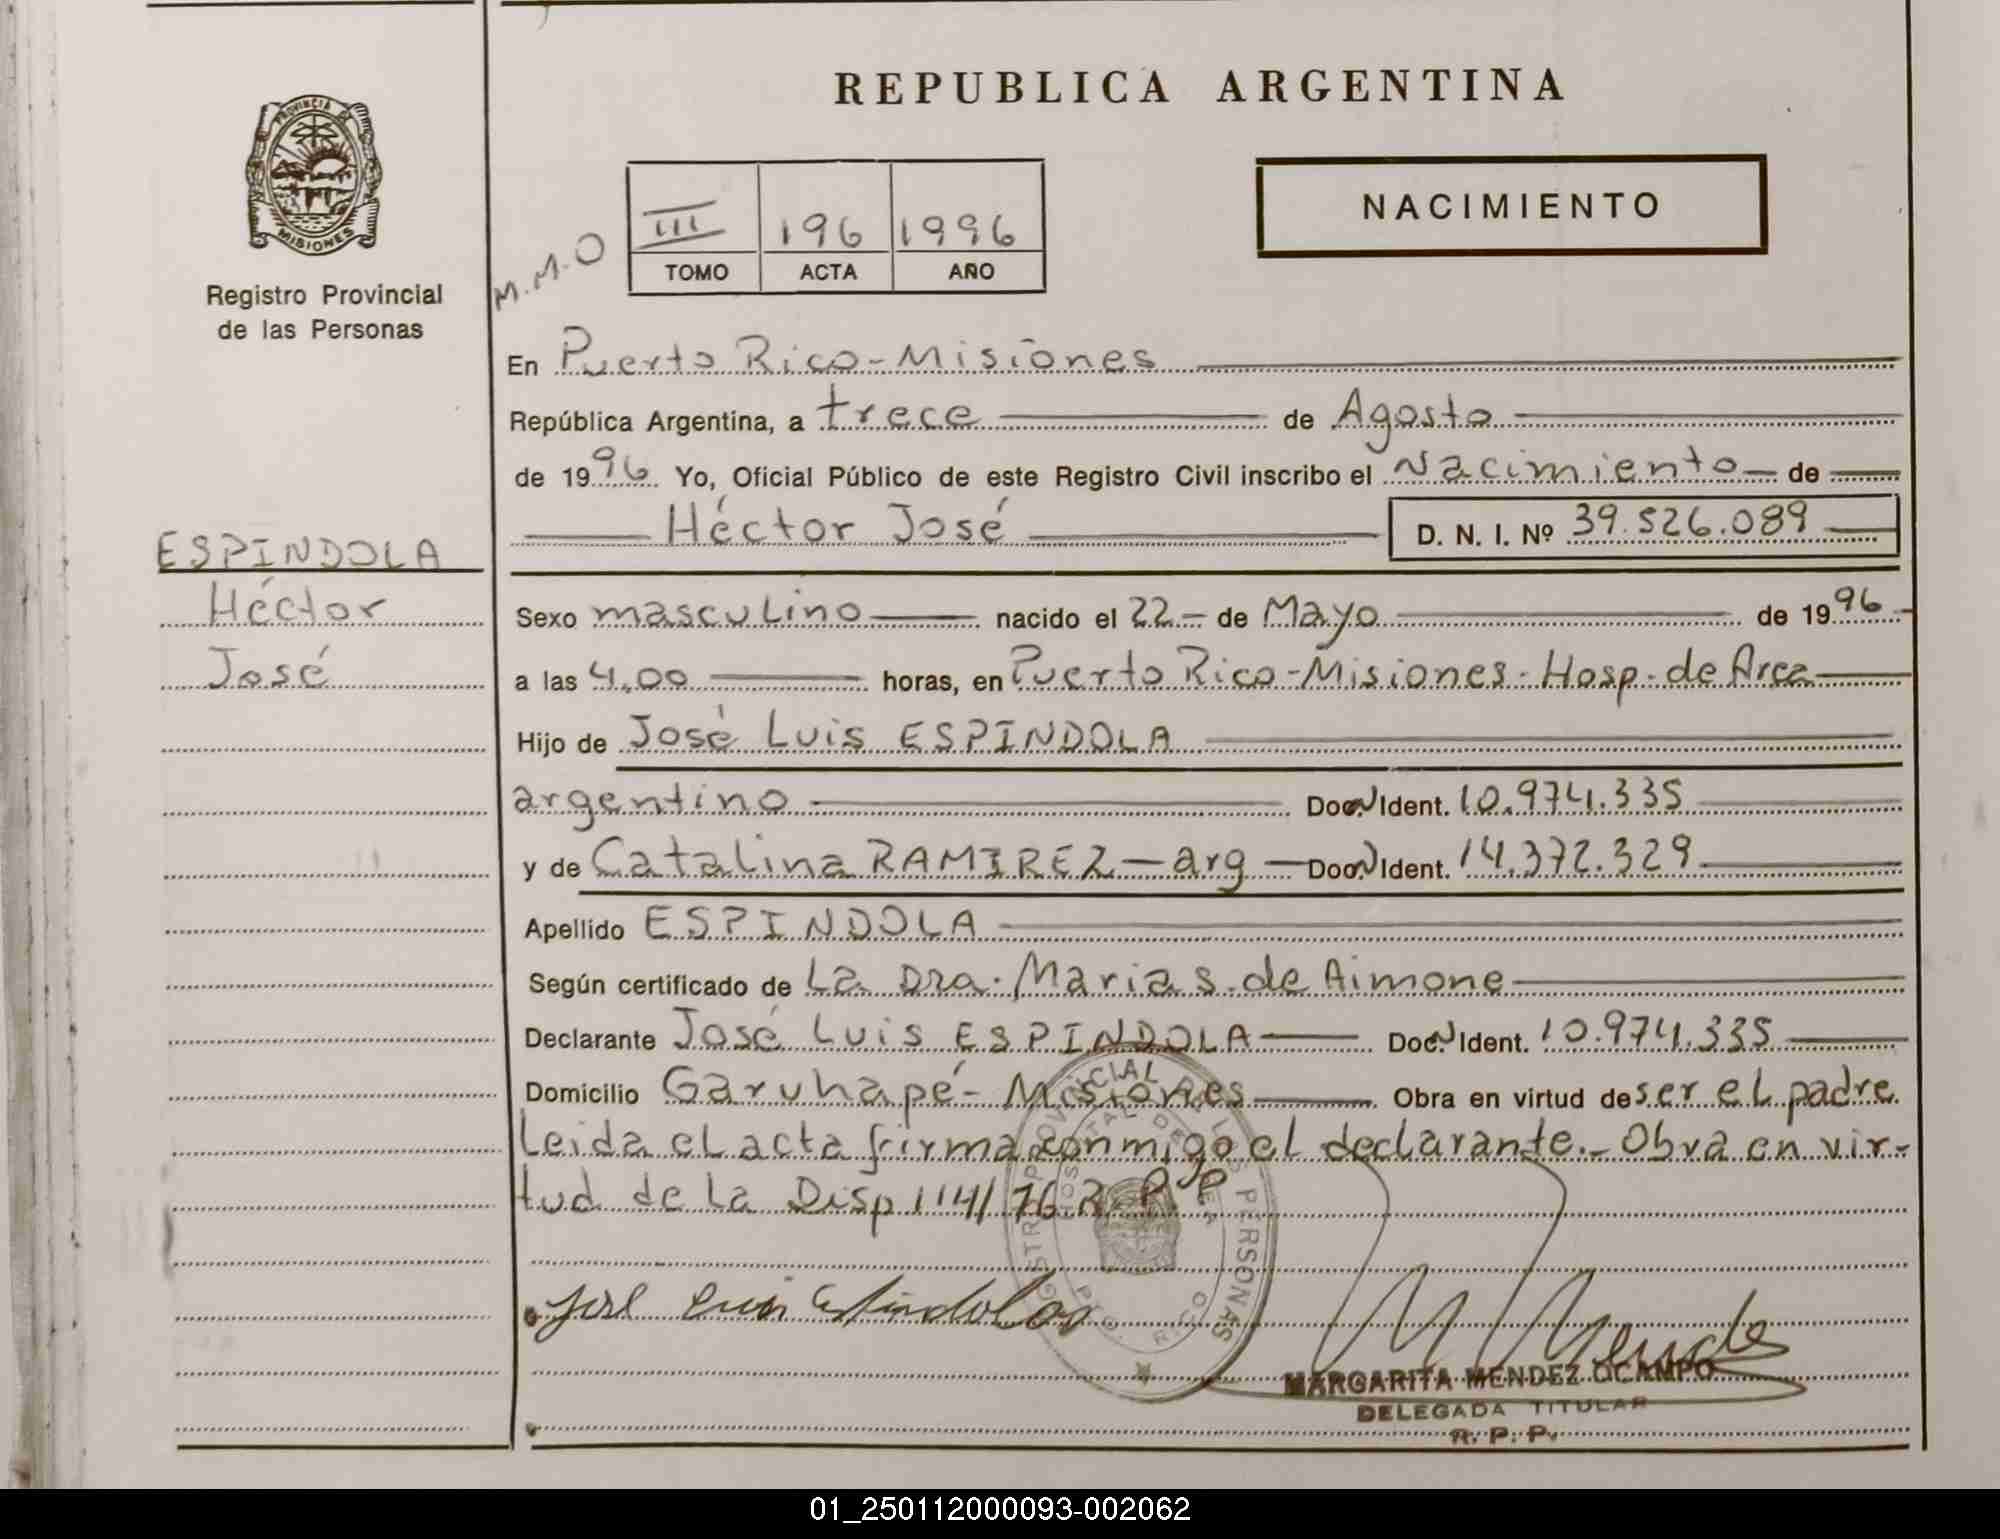 REPUBLICA ARGENTINA
PROVINCIA DE
MISIONES
Registro Provincial
de las Personas
M.M.O
III 196 1996
TOMO ACTA AÑO
NACIMIENTO
En Puerto Rico-Misiones
República Argentina, a trece de Agosto
de 1996 Yo, Oficial Público de este Registro Civil inscribo el Nacimiento de
Héctor José D. N. I. Nº 39.526.089
ESPINDOLA
Héctor
José
Sexo masculino nacido el 22 de Mayo de 1996
a las 4,00 horas, en Puerto Rico-Misiones-Hosp. de Area
Hijo de José Luis ESPINDOLA
argentino Doc. N Ident. 10.974.335
y de Catalina RAMIREZ - arg - Doc. N Ident. 14.372.329
Apellido ESPINDOLA
Según certificado de La Dra. Maria S. de Aimone
Declarante José Luis ESPINDOLA Doc. N Ident. 10.974.335
Domicilio Garuhapé - Misiones Obra en virtud de ser el padre
Leida el acta firma conmigo el declarante.- Obra en vir-
tud de la Disp 114/76 R.P.P
REGISTRO PROVINCIAL DE LAS PERSONAS
HOSPITAL DE AREA
PTO. RICO
José Luis Espindola
M Mendez
MARGARITA MENDEZ OCAMPO
DELEGADA TITULAR
R. P. P.
01_250112000093-002062